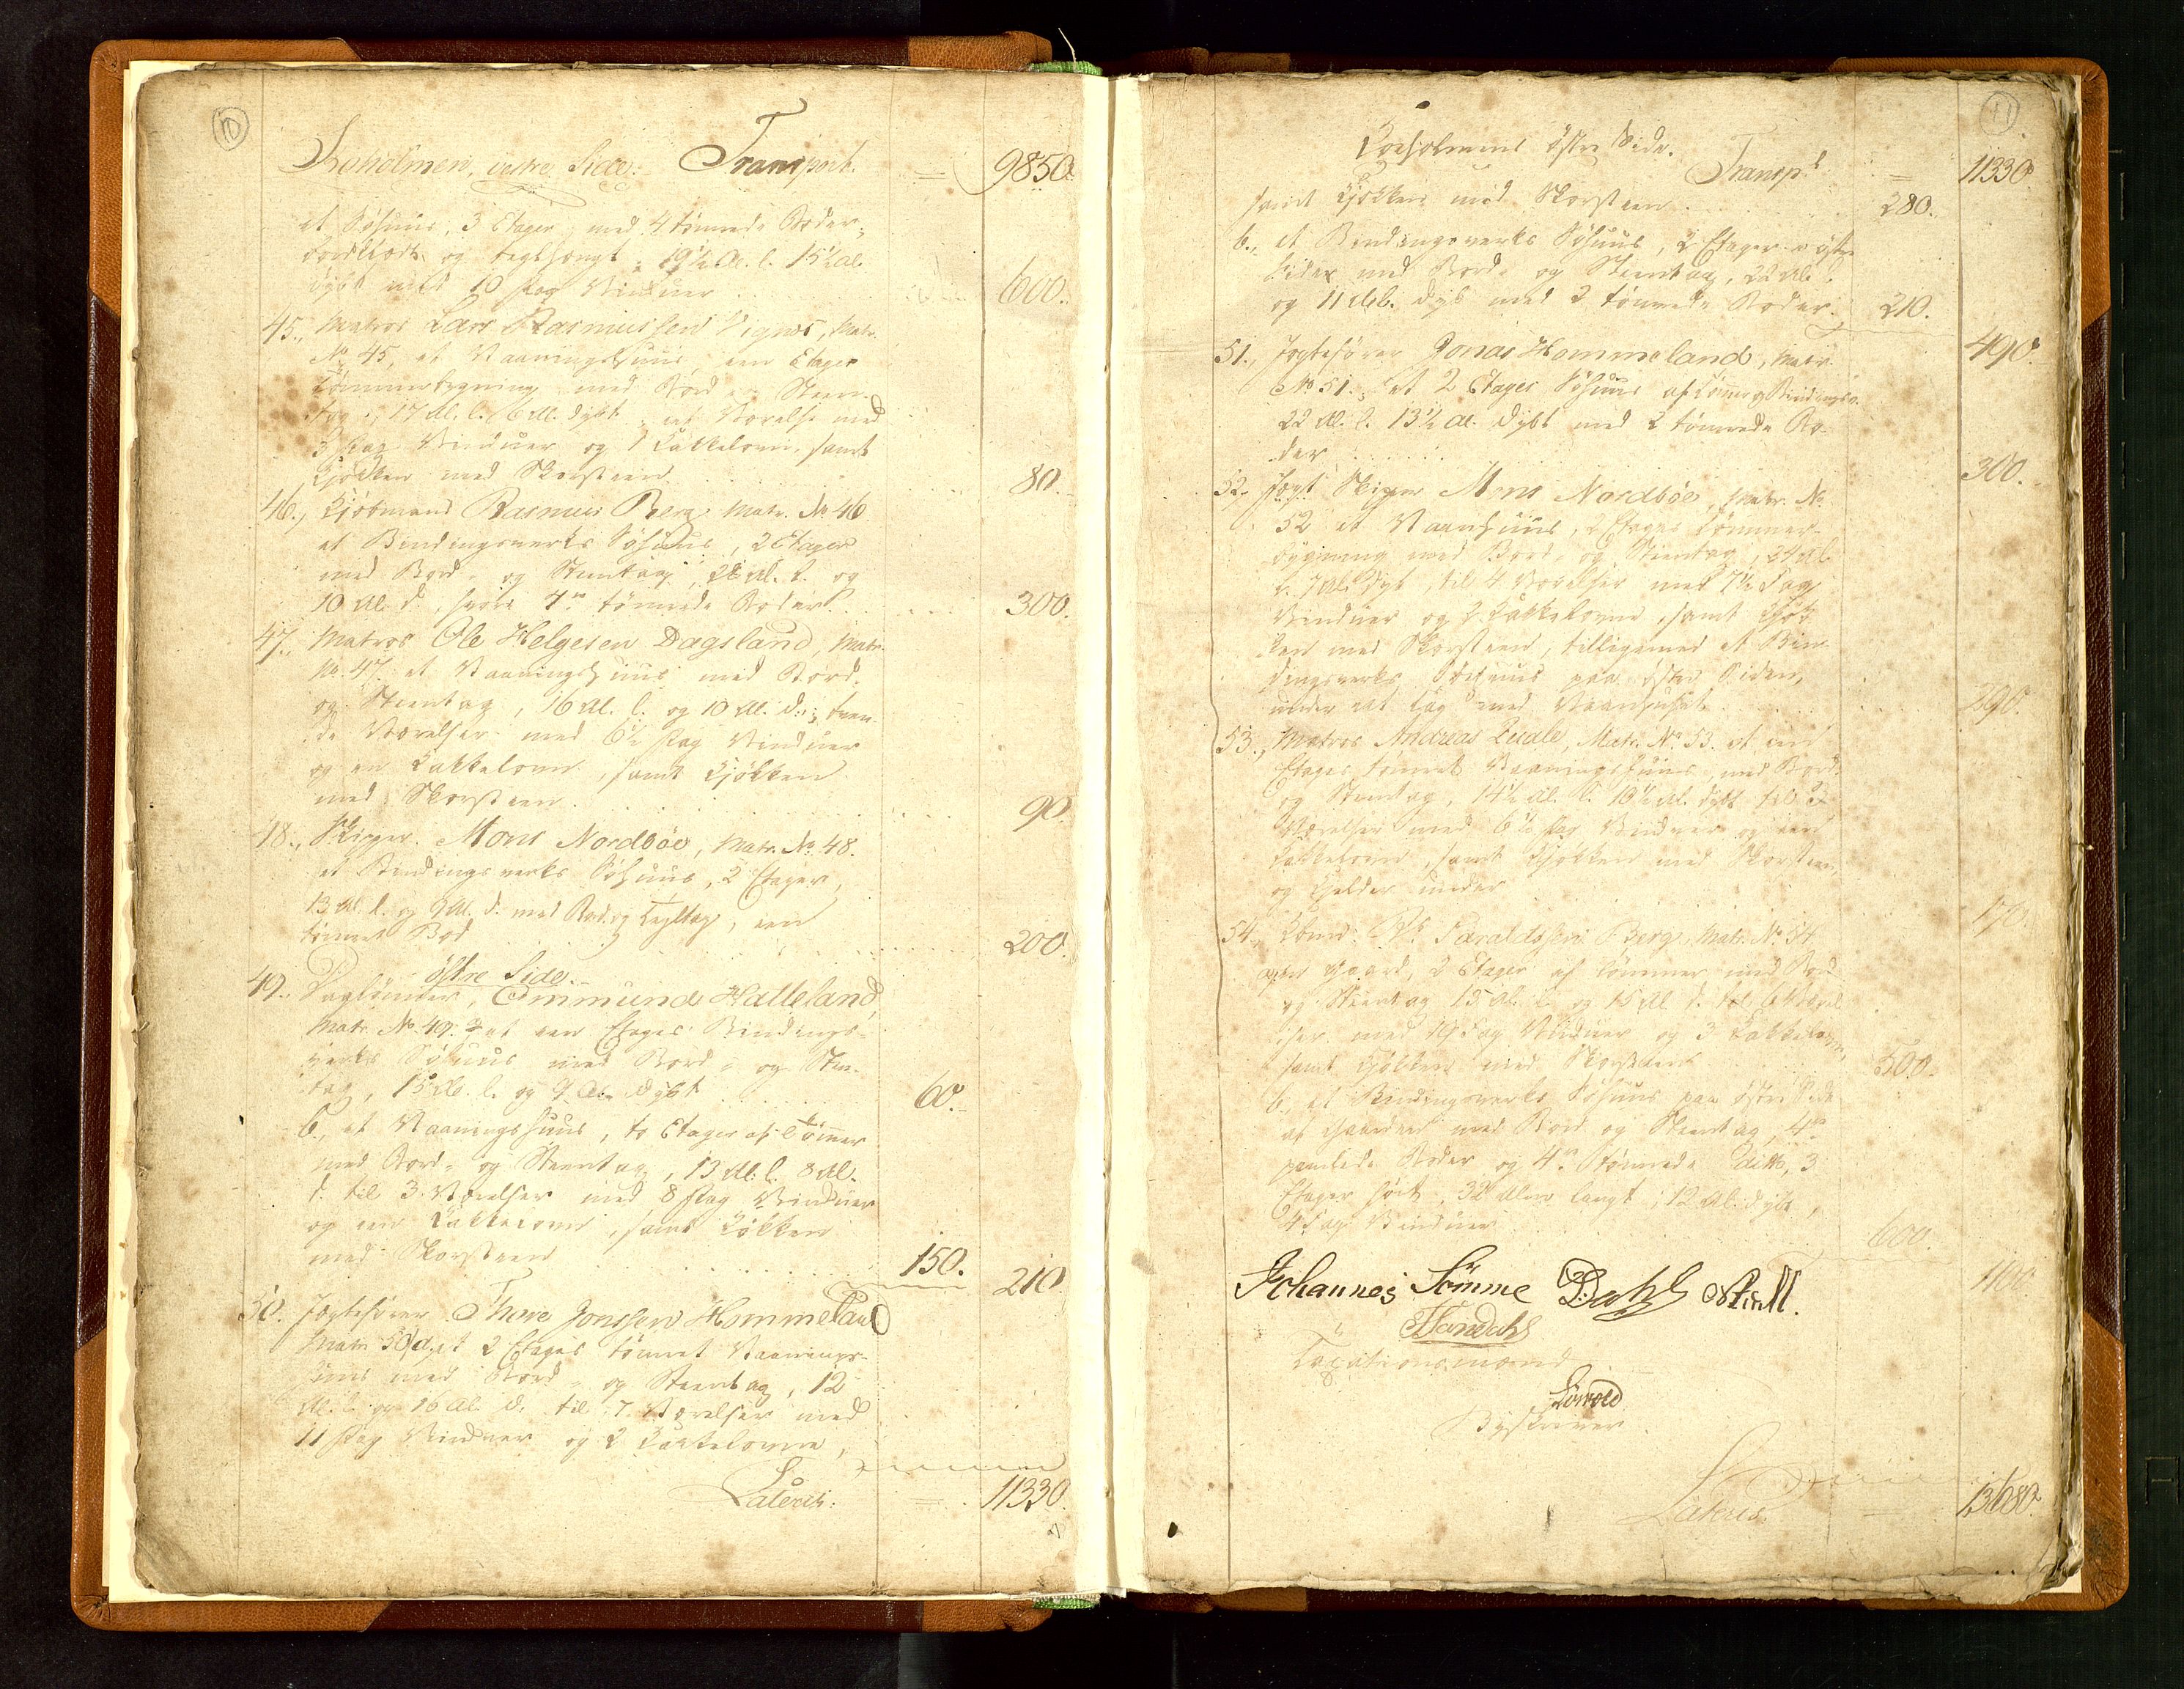 10
Soeholmen, vestre Side: Transport. = 9850.
et Søhuus, 3 Etager, med 4 tømrede Boder,
bordklædt og teglhængt, 19½ Al. l. 15½ Al.
dybt med 10 Fag Vinduer 600.
45., Matros Lars Rasmussen Vignes, Matr.
No 45, et Vaaningshuus, een Etages
Tømmerbygning med Bord- og Steen-
tag, 17 Al. l. 6 Al. dybt, et Værelse med
3 Fag Vinduer og 1 Kakkelovn, samt
Kjøkken med Skorsteen 80.
46., Kjøbmand Rasmus Berg Matr. No 46
et Bindingsverks Søhuus, 2 Etager
med Bord- og Steentag, 22 Al. l. og
10 Al. d., hvori 4re tømrede Boder. 300.
47., Matros Ole Helgesen Dagsland, Matr.
No 47. et Vaaningshuus med Bord-
og Steentag, 16 Al. l. og 10 Al. d., tven-
de Værelser med 6½ Fag Vinduer
og en Kakkelovn, samt Kjøkken
med Skorsteen. 90.
48., Skipper Mons Nordböe, Matr. No 48.
et Bindingsverks Søhuus, 2 Etager,
13 Al. l. og 9 Al. d. med Bord og Tegltag, een
tømret Bod 200.
östre Side.
49., Daglönner, Emmund Halleland,
Matr. No 49. a et een Etages Bindings-
verks Søhuus med Bord- og Steen-
tag, 15 Al. l. og 9 Al. dybt 60.
b., et Vaaningshuus, to Etager af Tømmer
med Bord- og Steentag, 13 Al. l. 8 Al.
d. til 3 Værelser med 8 Fag Vinduer
og een Kakkelovn, samt Køkken
med Skorsteen 150. 210.
50. Jægtefører Thore Jonssen Hommeland
Matr. 50, a. et 2 Etages tømret Vaanings-
huus med Bord- og Steentag, 12
Al. l. og 16 Al. d. til 7 Værelser med
11 Fag Vinduer og 2 Kakkelovne,
Lateris. = 11330.
11
Soeholmens østre Side.
Transpt = 11330.
samt Kjøkken med Skorsteen 280.
b., et Bindingsverks Søhuus, 2 Etager østre
Side med Bord- og Steentag, 22 Al. l.
og 11 Al. dyb med 2 tømrede Boder. 210.
490.
51., Jægtefører Jonas Hommeland, Matr.
No 51., et 2 Etages Søhuus af Tømmer og Bindingsv.
22 Al. l. 13½ Al. dybt med 2 tømrede Bo-
der 300.
52. Jægt Skipper Mons Nordböe, Matr. No
52 et Vaanhuus, 2 Etages Tømmer-
bygning med Bord- og Steentag, 24 Al.
l. 7 Al. dyb, til 4 Værelser med 7½ Fag
Vinduer og 2 Kakkelovne, samt Kjøk-
ken med Skorsteen, tilligemed et Bin-
dingsverks Søehuus paa østre Siden,
under eet Tag med Vaanhuset 290.
53., Matros Andreas Leudle, Matr. No 53. et een
Etages tømret Vaaningshuus, med Bord-
og Steentag, 14½ Al. l. 10½ Al. dybt til 2
Værelser med 6½ Fag Vinduer og een
Kakkelovn, samt Kjøkken med Skorsteen,
og Kjelder under 170.
54., Faraldssen Berg, Matr. No 54.
Gaard, 2 Etager af Tømmer med Bord
og Steentag 15 Al. l. og 15 Al. d. til 6 Værel-
ser med 19 Fag Vinduer og 3 Kakkelovne,
samt Kjøkken med Skorsteen 500.
b., et Bindingsverks Søhuus paa østre Side
af Gaarden med Bord og Steentag, 4re
panelede Boder og 4re tømrede ditto, 3
Etager høit, 32 Alen langt, 12 Al. dybt,
4 Fag Vinduer 600.
1100.
Johannes Sömme Dahl
Taxationsmænd
Byskriver
Lateris = 13680.